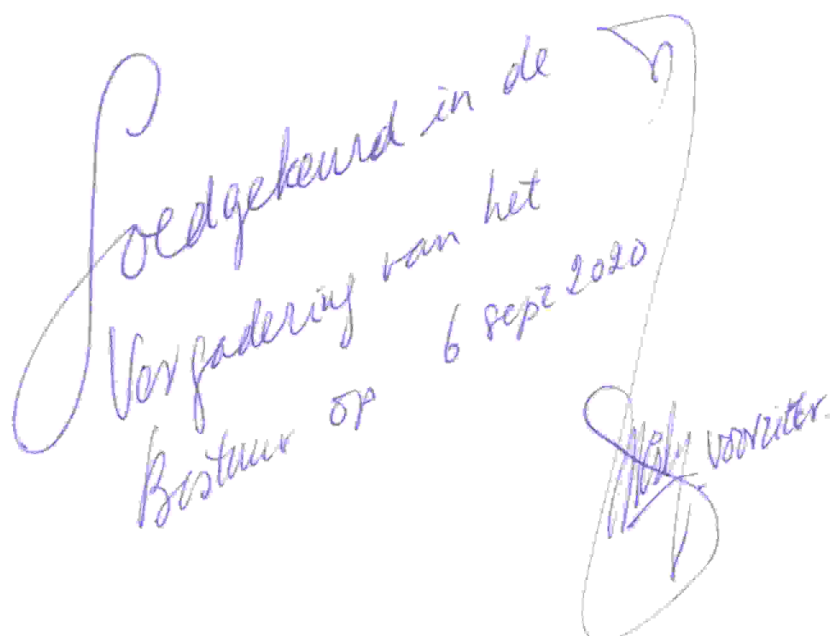 Goedgekeurd in de
Vergadering van het
Bestuur op 6 sept 2020
voorzitter.